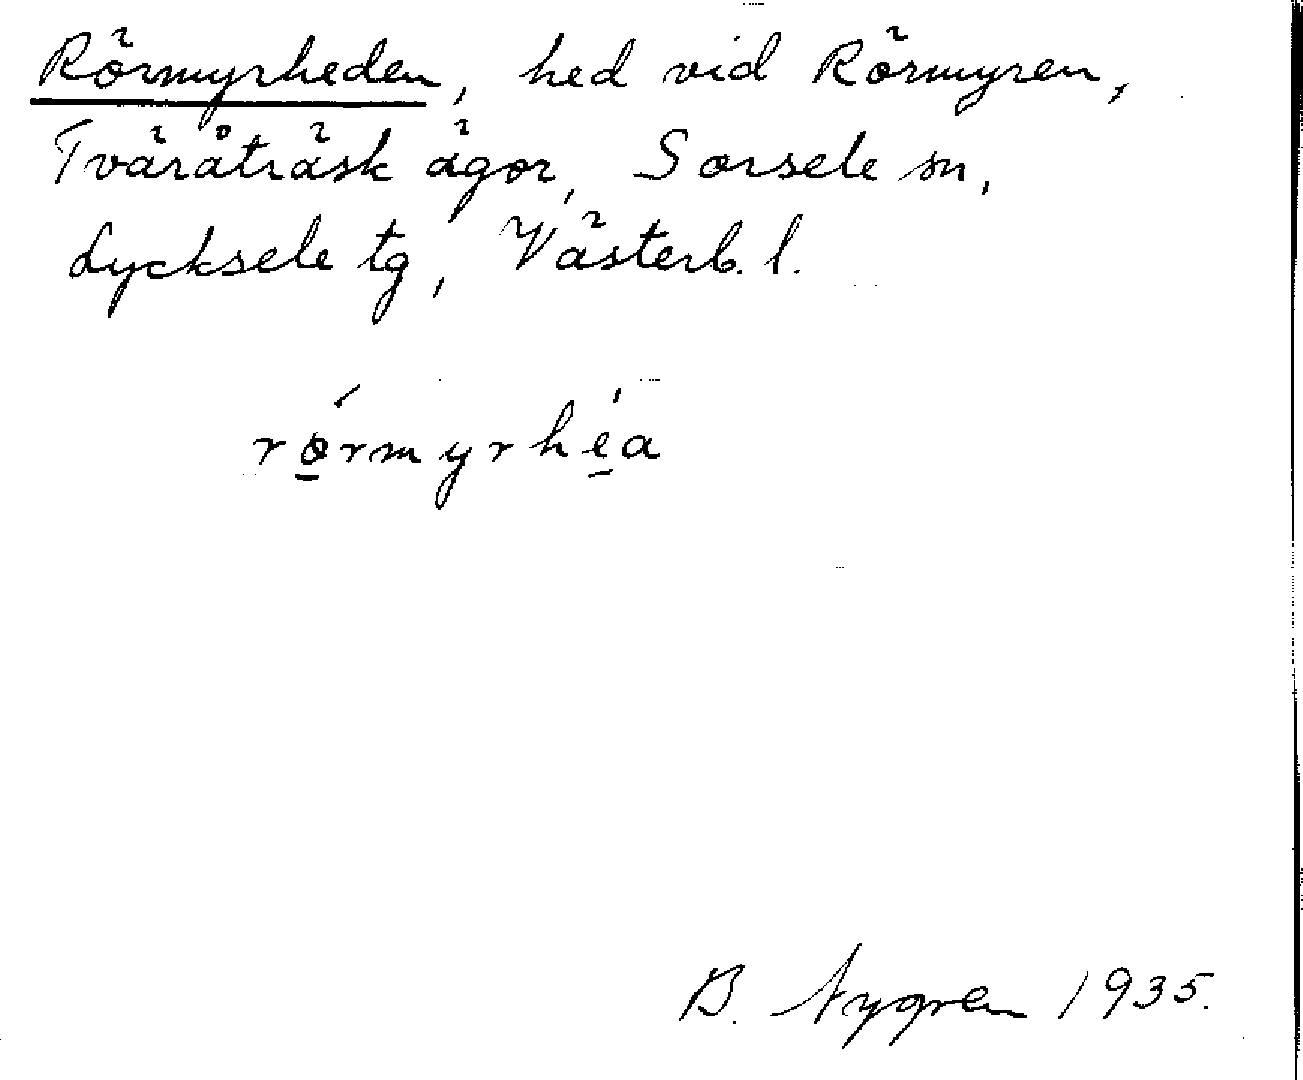 Rörmyrheden, hed vid Rörmyren,
Tväråträsk ägor, Sorsele sn,
Lycksele tg, Västerb. l.
rǿ̱rmyrhé̱a
B. Nygren 1935.